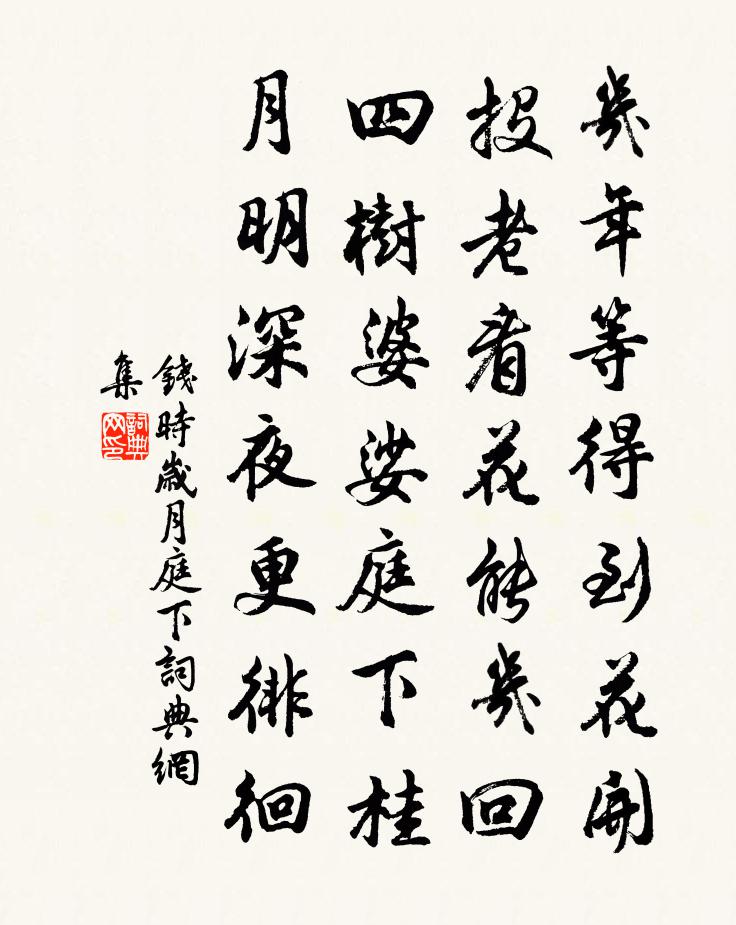 幾年等得到花開
投老看花能幾回
四樹婆娑庭下桂
月明深夜更徘徊
錢時歲月庭下詞典網
集
詞典
网印